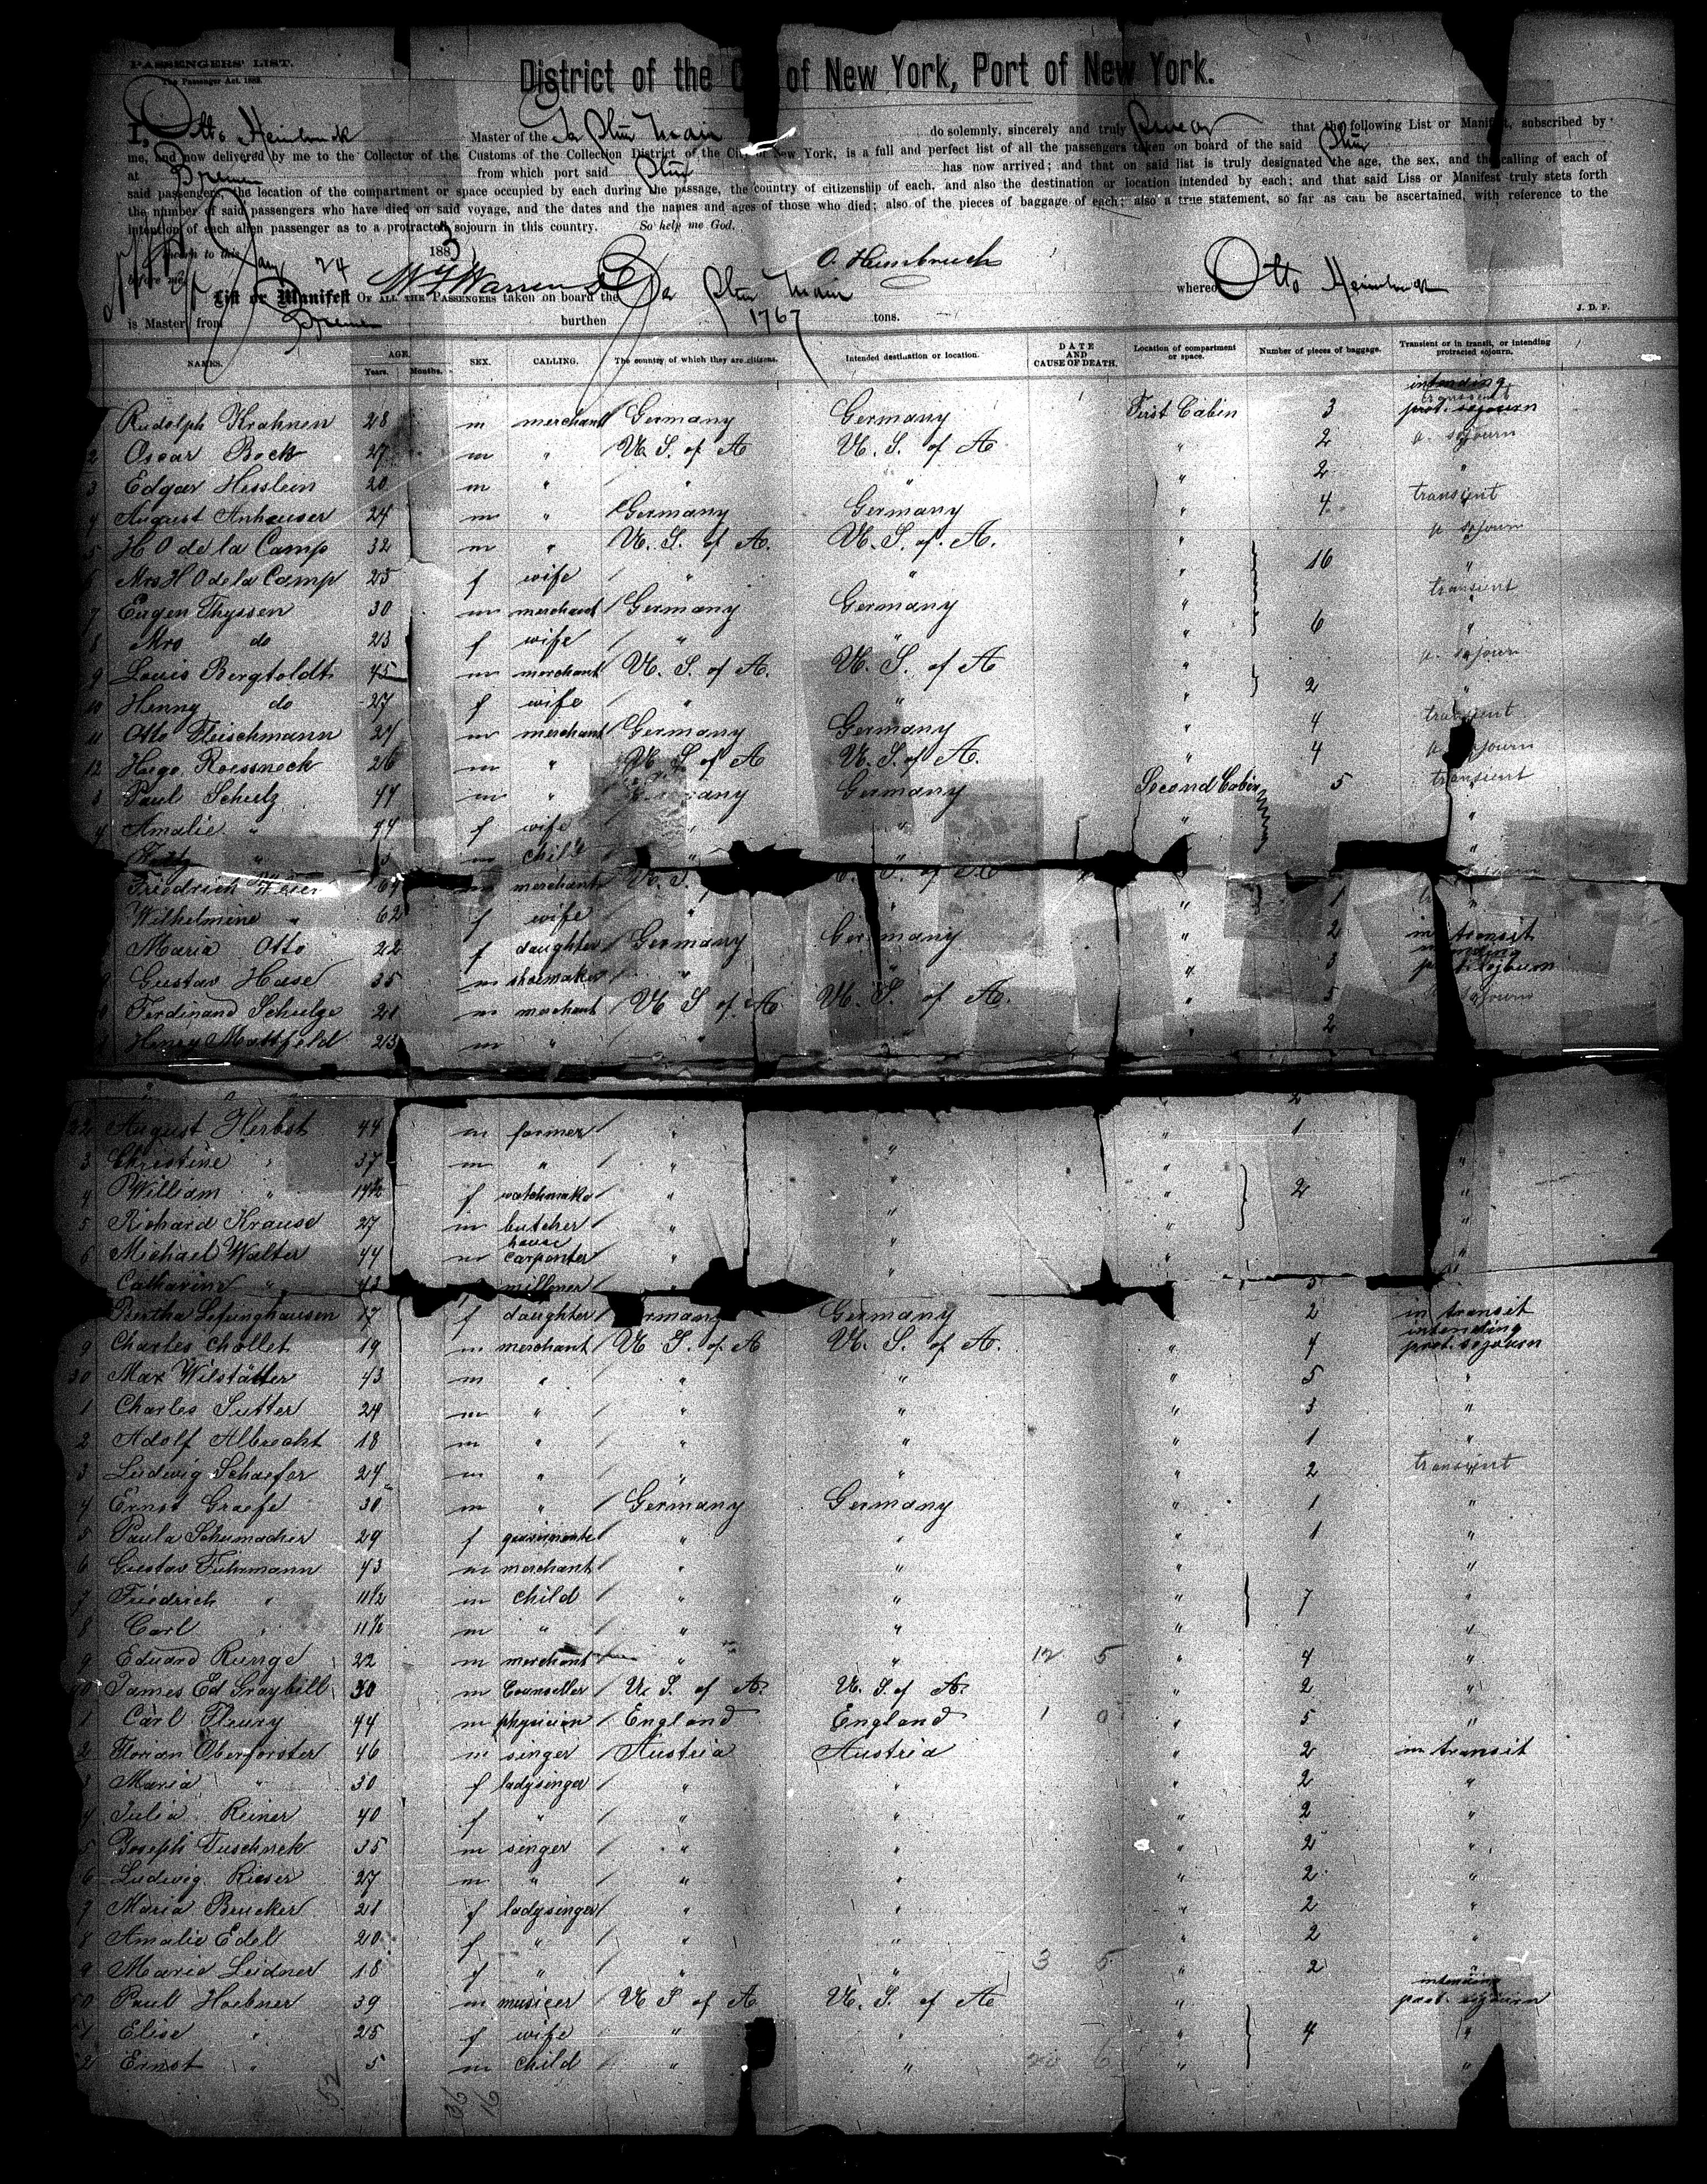 PASSENGERS' LIST.
The Passenger Act, 1882.
District of the of New York, Port of New York.
I, Otto Heimbruch Master of the Ger Stmr Main do solemnly, sincerely and truly swear that the following List or Manifest, subscribed by
me, and now delivered by me to the Collector of the Customs of the Collection District of the City of New York, is a full and perfect list of all the passengers taken on board of the said Stmr
at Bremen from which port said Stmr has now arrived; and that on said list is truly designated the age, the sex, and the calling of each of
said passengers, the location of the compartment or space occupied by each during the passage, the country of citizenship of each, and also the destination or location intended by each; and that said Liss or Manifest truly stets forth
the number of said passengers who have died on said voyage, and the dates and the names and ages of those who died; also of the pieces of baggage of each; also a true statement, so far as can be ascertained, with reference to the
intention of each alien passenger as to a protracted sojourn in this country. So help me God.
Sworn to this Jany 24 1883 O. Heimbruch
before me
List or Manifest OF ALL THE PASSENGERS taken on board the Ger Stmr Main whereof Otto Heimbruch
is Master, from Bremen burthen 1767 tons. J. D. F.
NAMES. AGE. Years. Months. SEX. CALLING. The country of which they are citizens. Intended destination or location. DATE AND CAUSE OF DEATH. Location of compartment or space. Number of pieces of baggage. Transient or in transit, or intending protracted sojourn.
Rudolph Krahnen 28 m merchant Germany Germany First Cabin 3 intending prot. sojourn transient
2 Oscar Bock 27 m " U. S. of A U. S. of A " 2 p. sojourn
3 Edgar Hesslein 20 m " " " " 2 "
4 August Anhauser 24 m " Germany Germany " 4 transient
5 H O de la Camp 32 m " U. S. of A. U. S. of A. " 16 p. sojourn
6 Mrs H O de la Camp 25 f wife " " " "
7 Eugen Thyssen 30 m merchant Germany Germany " 6 transient
8 Mrs do 23 f wife " " " "
9 Louis Bergtoldt 45 m merchant U. S. of A. U. S. of A " 2 p. sojourn
10 Henny do 27 f wife " " " "
11 Otto Fleischmann 27 m merchant Germany Germany " 4 transient
12 Hugo Roessneck 26 m " U S of A U. S. of A. " 4 p. sojourn
3 Paul Schulz 44 m " Germany Germany Second Cabin 5 transient
4 Amalie " 44 f wife " " " "
" m child " " "
Friedrich 64 m merchant U. S. of A
Wilhelmine " 62 f wife " " " 1 "
Maria Otto 22 f daughter Germany Germany " 2 in transit
9 Gustav Hase 35 m shoemaker " " " 3 intending prot. sojourn
Ferdinand Schulze 21 m merchant U S of A U. S. of A. " 5 sojourn
Henry Mattfeld 23 m " " " " 2
22 August Herbst 44 m farmer " " " 1
3 Christine " 37 m " " " " "
4 William " 14½ f watchmaker " " " 2 "
5 Richard Krause 27 m butcher " " " "
6 Michael Walter 44 m house carpenter " " " "
Catharine " 42 milliner " " 3
Bertha 17 f daughter Germany Germany " 2 in transit
9 Charles Chollet 19 m merchant U S. of A U. S. of A. " 4 intending prot. sojourn
30 Max Wilstätter 43 m " " " " 5 "
1 Charles Sutter 24 m " " " " 3 "
2 Adolf Albrecht 18 m " " " " 1 "
3 Ludwig Schaefer 24 m " " " " 2 transient
4 Ernst Graefe 30 m " Germany Germany " 1 "
5 Paula Schumacher 29 f " " " 1 "
6 Gustav Fuhrmann 43 m merchant " " " "
7 Friedrich " 11½ m child " " " 7 "
8 Carl " 11½ m " " " " "
9 Eduard 22 m merchant " " 12 5 " 4 "
40 James Ed Graybill 30 m Counseller U. S. of A. U. S. of A. " 2 "
1 Carl Fleury 44 m physician England England 1 0 " 5 "
2 Florian Oberforster 46 m singer Austria Austria " 2 in transit
3 Maria " 30 f ladysinger " " " 2 "
4 Julia Reiner 40 f " " " " 2 "
5 Joseph Tuschnek 35 m singer " " " 2 "
6 Ludwig Rieser 27 m " " " " 2 "
7 Maria Brucker 21 f ladysinger " " " 2 "
8 Amalie Edel 20 f " " " " 2 "
9 Marie Leidner 18 f " " " 3 5 " 2 "
50 Paul Hoebner 39 m musicer U S of A U. S. of A " intending prot. sojourn
51 Elise " 25 f wife " " " 4 "
52 Ernst " 5 m child " " 20 6 " "
52 36 16